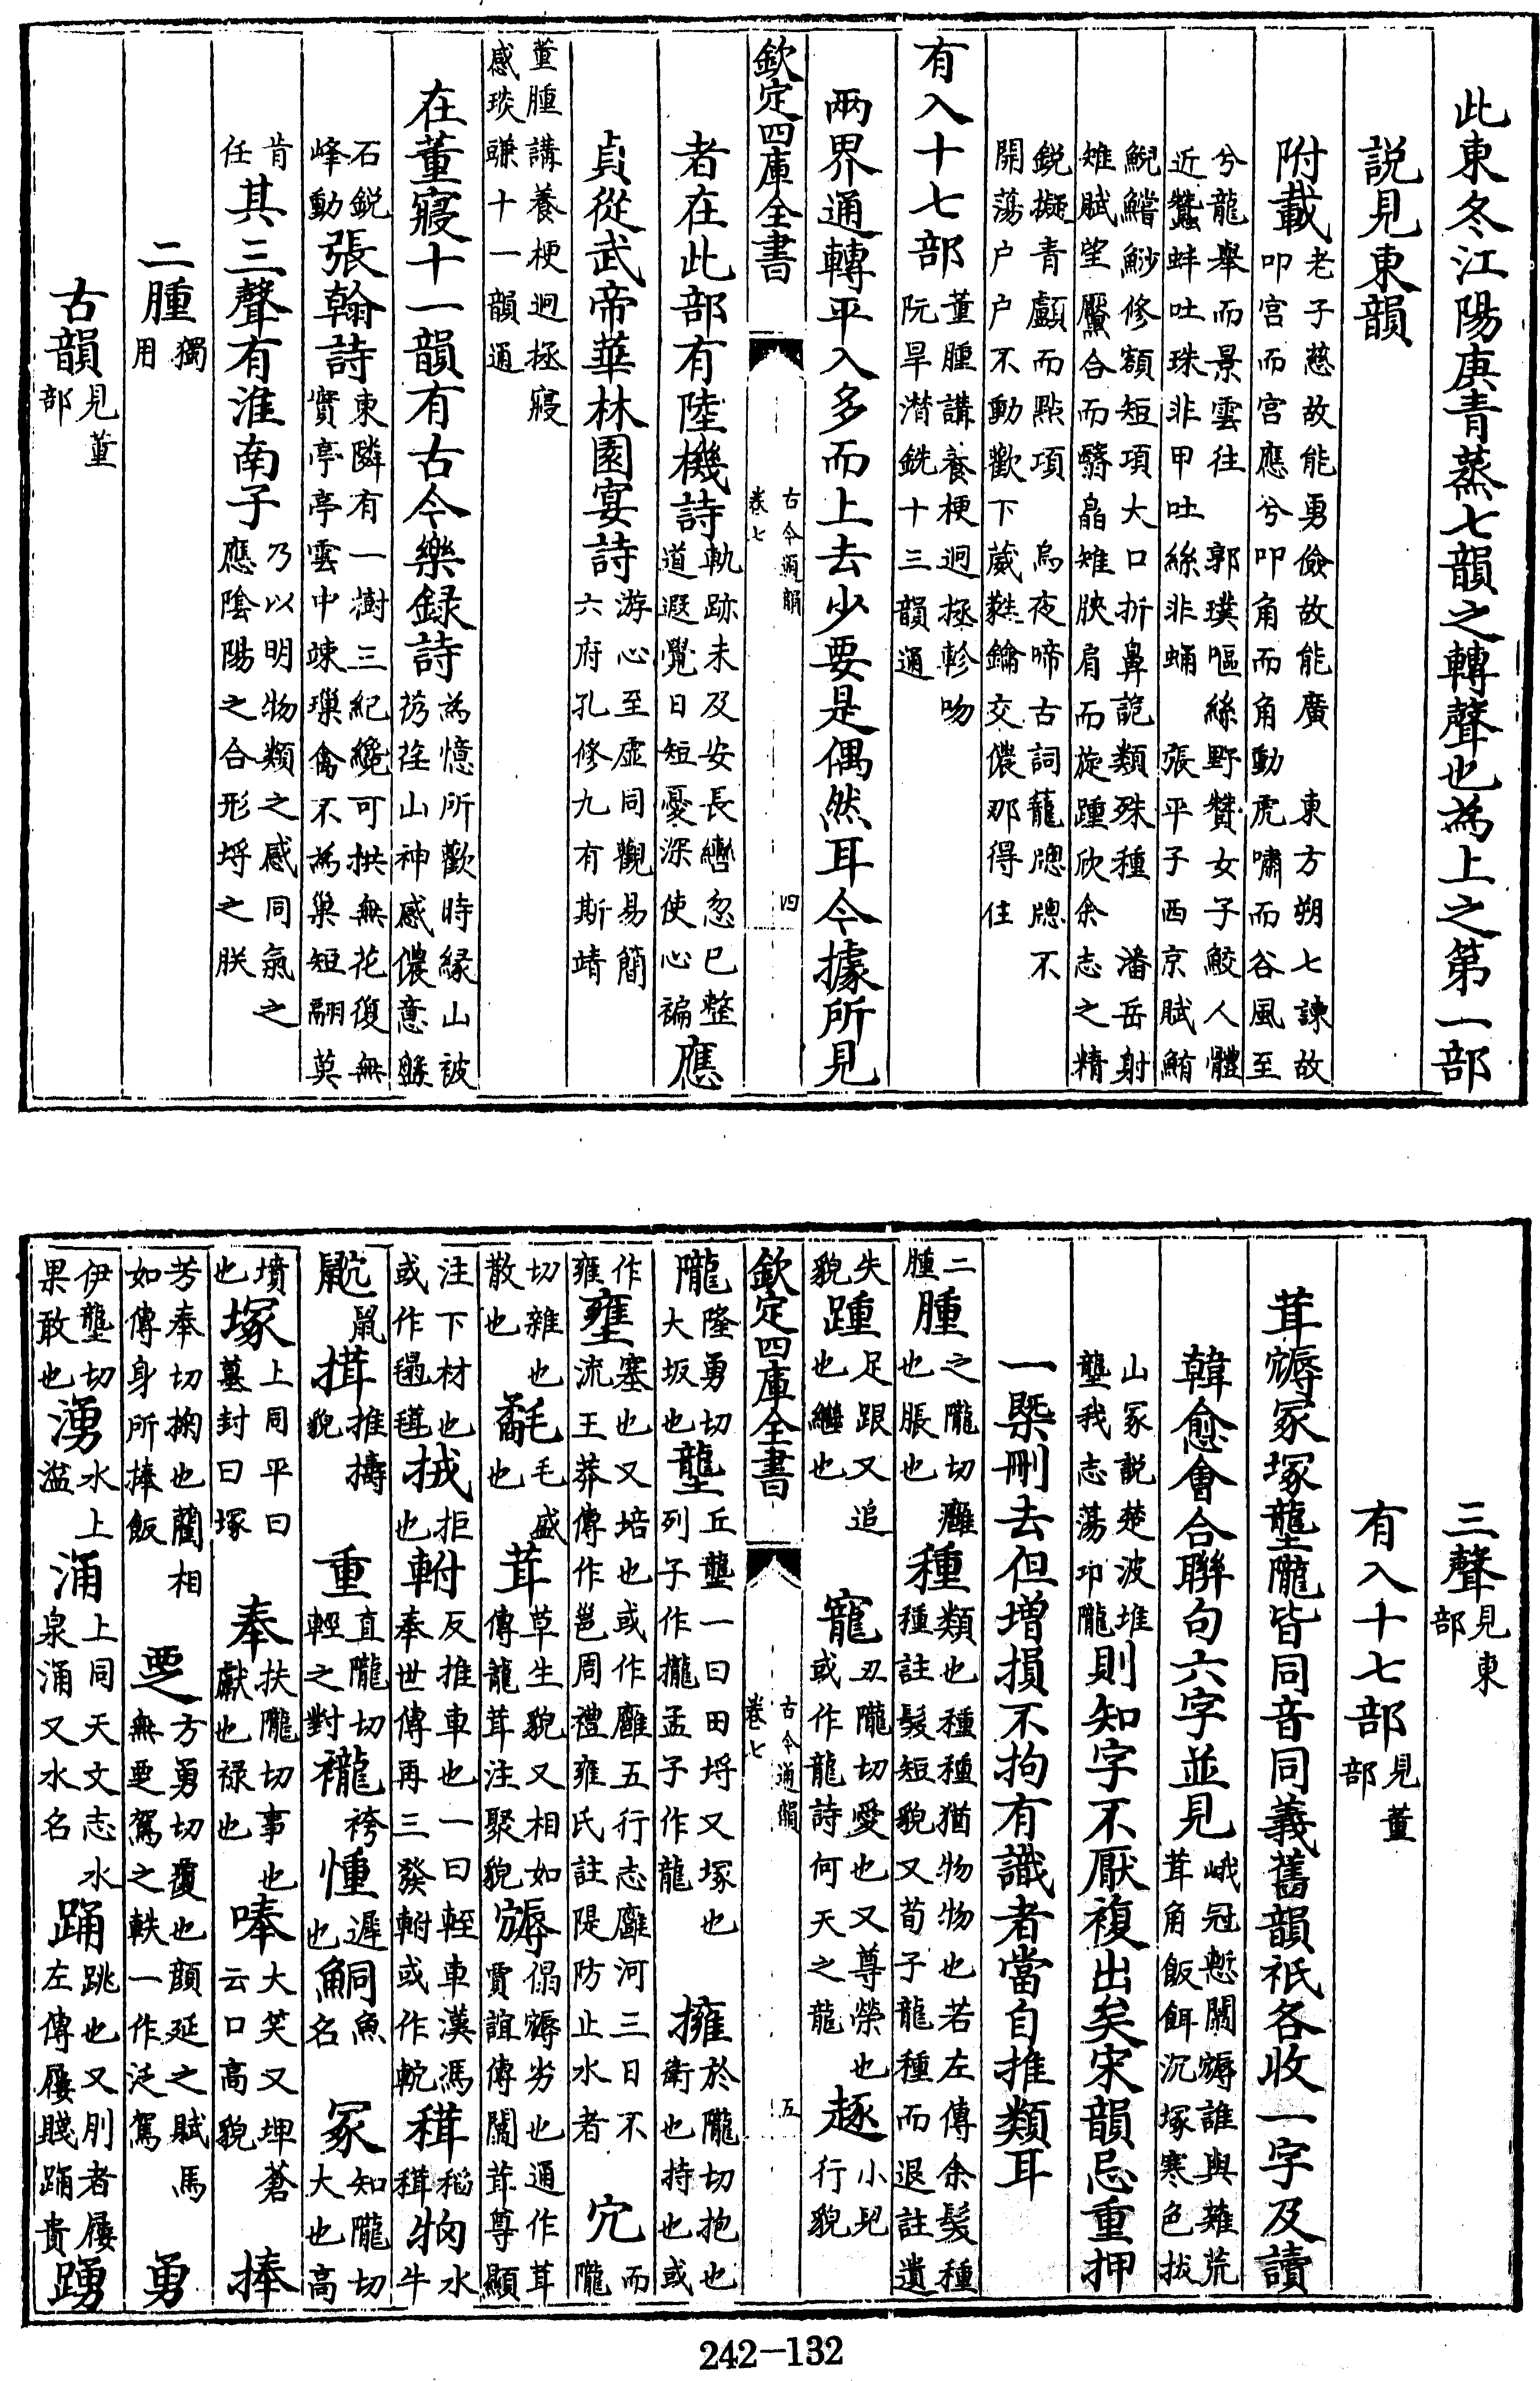 此東冬江陽庚青蒸七韻之轉聲也為上之第一部
説見東韻
附載老子慈故能勇儉故能廣 東方朔七諫故
叩宫而宫應兮叩角而角動虎嘯而谷風至
兮龍舉而景雲往 郭璞嘔絲野贊女子鮫人體
近蠶蚌吐珠非甲吐絲非蛹 張平子西京賦鮪
鯢鱨魦修額短項大口折鼻詭類殊種 潘岳射
雉賦望黶合而翳晶雉脥肩而旋踵欣余志之精
鋭擬青顱而點項 烏夜啼古詞籠𥦗𥦗不
開蕩户户不動歡下葳蕤鑰交儂那得住
有入十七部董腫講養梗迥拯軫吻
阮旱潸銑十三韻通
兩界通轉平入多而上去少要是偶然耳今據所見
欽定四庫全書
古今通韻
卷七
四
者在此部有陸機詩軌跡未及安長轡忽已整
道遐覺日短憂深使心褊應
貞從武帝華林園宴詩游心至虚同觀易簡
六府孔修九有斯靖
董腫講養梗迥拯寢
感琰豏十一韻通
在董寢十一韻有古今樂録詩為憶所歡時緣山被
芿荏山神感儂意盤
石鋭峰動張翰詩東隣有一樹三紀纔可拱無花復無
實亭亭雲中竦璅禽不為巢短翮莫
肯任其三聲有淮南子乃以明物類之感同氣之
應陰陽之合形埒之朕
二腫獨用
古韻見董部
三聲見東部
有入十七部見董部
茸𪨊冢塚壟壠隴皆同音同義舊韻祇各收一字及讀
韓愈會合聯句六字並見峨冠慙闒𪨊誰與薙荒
茸角飯餌沉塚寒色拔
山冢説楚波堆
壟我志蕩卭隴則知字不厭複出矣宋韻忌重押
一槩刪去但增損不拘有識者當自推類耳
二腫腫之隴切癰
也脹也種類也種種猶物物也若左傳余髮種
種註髮短貌又荀子龍種而退註遺
失貌踵足跟又追
也繼也寵丑隴切愛也又尊榮也
或作龍詩何天之龍𨄔小兒
行貌
欽定四庫全書
古今通韻
卷七
五
隴隆勇切
大坂也壟丘壟一曰田埒又塚也
列子作攏孟子作龍擁於隴切抱也
衛也持也或
作雍壅塞也又培也或作廱五行志廱河三日不
流王莽傳作邕周禮雍氏註隄防止水者宂而隴
切雜也
散也氄毛盛
也茸草生貌又相如
傳龍茸注聚貌𪨊傝𪨊劣也通作茸
賈誼傳闒茸尊顯
注下材也
或作毾㲪拭拒
也軵反推車也一曰輕車漢馮
奉世傳再三發軵或作䡥䅖稻䅖牣水牛
䶈鼠揖推擣
貌重直隴切
輕之對襱袴㣫遲
也鮦魚
名冢知隴切
大也高
墳也塚上同平曰
墓封曰塚奉扶隴切事也
獻也禄也唪大笑又埤蒼
云口高貌捧
芳奉切掬也藺相
如傳身所捧飯覂方勇切覆也顔延之賦馬
無覂駕之軼一作泛駕勇
伊壟切
果敢也湧水上
溢涌上同天文志水
泉涌又水名踊跳也又刖者屨
左傳屨賤踊貴踴
242—132